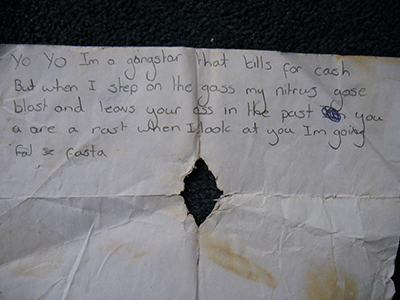 Yo Yo Im a gangstar that bills for cash
But when I step on the gass my nitrus gose
blast and leavs your ass in the past you
a are a rast when I look at you Im going
Fal fasta